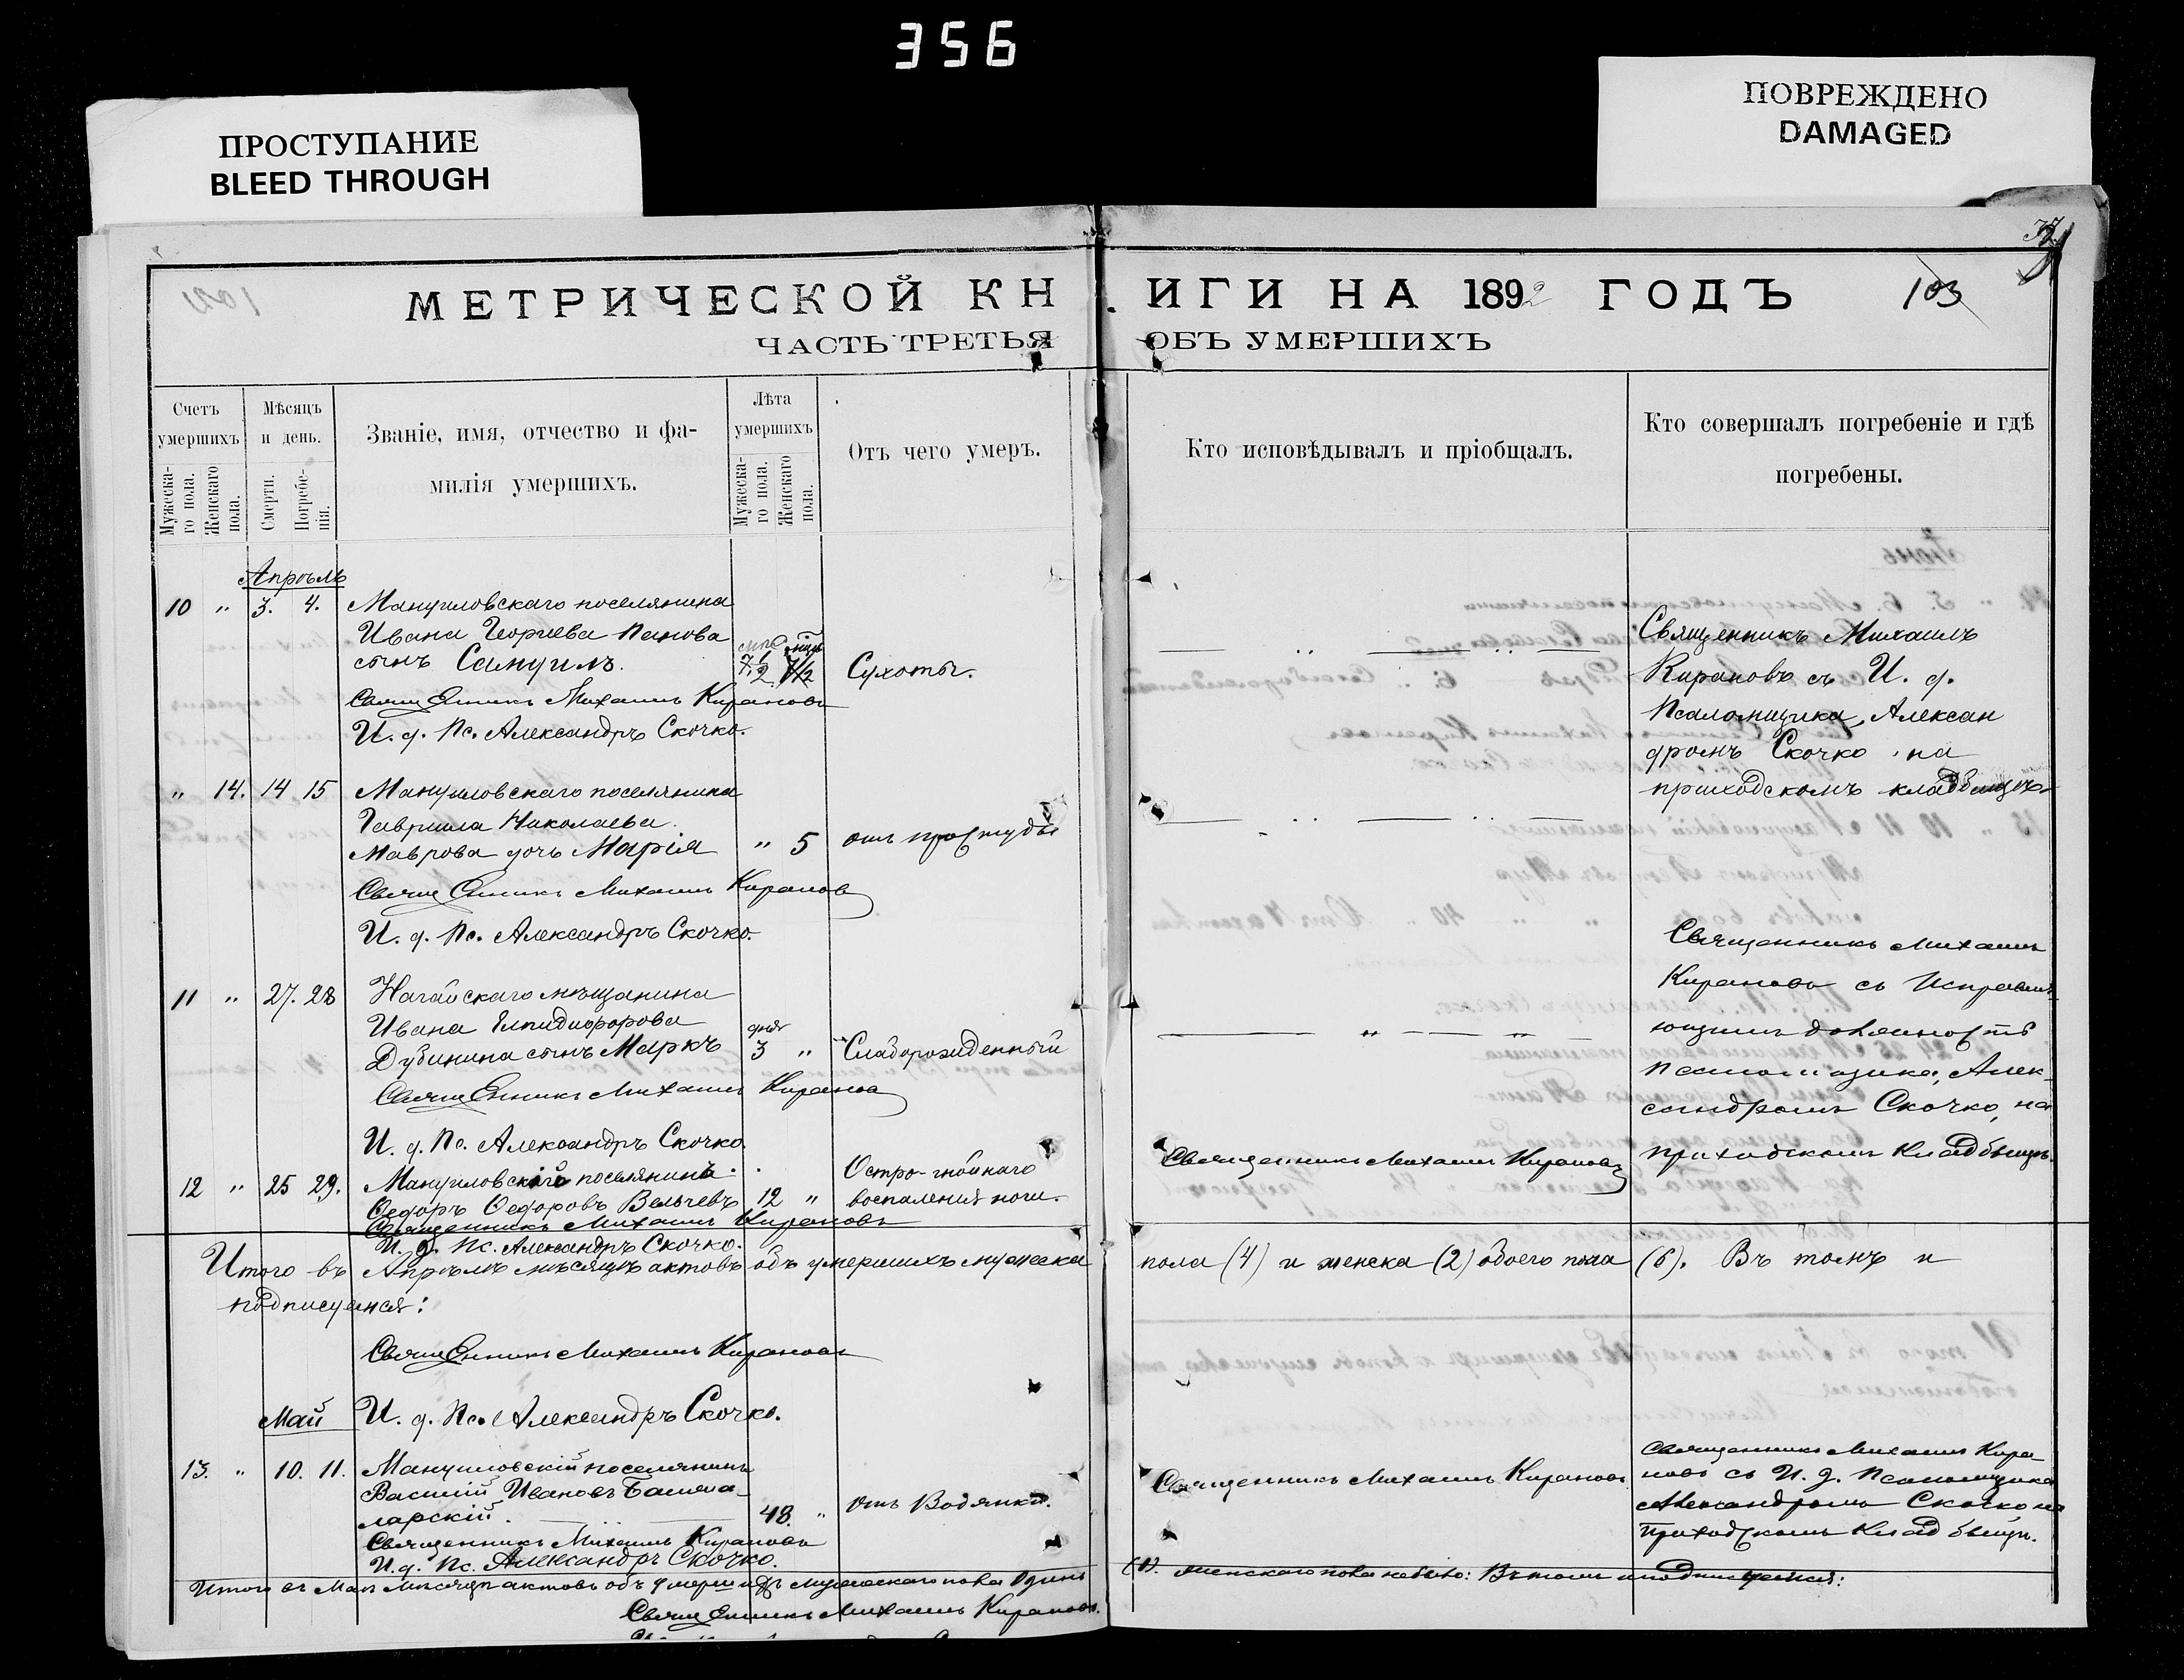 356
ПРОСТУПАНИЕ
BLEED THROUGH
ПОВРЕЖДЕНО
DAMAGED
МЕТРИЧЕСКОЙ КНИГИ НА 1892 ГОДЪ
103
ЧАСТЬ ТРЕТЬЯ ОБЪ УМЕРШИХЪ
Счетъ умершихъ
Мужеска-го пола.
Женскаго пола.
Мѣсяцъ и день.
Смерти.
Погребе-нія.
Званіе, имя, отчество и фа-
милія умершихъ.
Лѣта умершихъ
Мужеска-го пола.
Женскаго пола.
Отъ чего умеръ.
Кто исповѣдывалъ и пріобщалъ.
Кто совершалъ погребеніе и гдѣ
погребены.
Апрѣль
10 " 3. 4. Мануиловскаго поселянина
Ивана Георгіева Панова
сынъ Самуилъ. 7 1/2 Сухоты.
Священникъ Михаилъ Кирановъ
И. д. Пс. Александръ Скочко.
Священникъ Михаилъ
Кирановъ съ И. д.
Псаломщика, Алексан
дромъ Скочко на
приходскомъ кладбищѣ
" 14. 14 15 Мануиловскаго поселянина
Гавріила Николаева
Маврова дочь Марія " 5 отъ простуды
Священникъ Михаилъ Кирановъ
И. д. Пс. Александръ Скочко.
11 " 27. 28 Ногайскаго мѣщанина
Ивана Елпидифорова дня
Дубинина сынъ Маркъ 3 " Слаборожденный
Священникъ Михаилъ Кирановъ
И. д. Пс. Александръ Скочко.
Священникъ Михаилъ
Кирановъ съ Исправля-
ющимъ должность
Псаломщика, Алек-
сандромъ Скочко, на
приходскомъ кладбищѣ.
12 " 25 29. Мануиловскій поселянинъ Остро-гнойнаго
Ѳедоръ Ѳедоровъ Вельчевъ 12 " воспаления ноги.
Священникъ Михаилъ Кирановъ
Священникъ Михаилъ Кирановъ
И. д. Пс. Александръ Скочко.
Итого въ Апрѣлѣ мѣсяцѣ актовъ объ умершихъ мужеска пола (4) и женска (2) обоего пола (6). Въ томъ и
подписуемся:
Священникъ Михаилъ Кирановъ
Май И. д. Пс. Александръ Скочко.
13. " 10. 11. Мануиловскій поселянинъ
Василій Ивановъ Башма-
ларскій. 48. " отъ Водянки.
Священникъ Михаилъ Кирановъ
И. д. Пс. Александръ Скочко.
Священникъ Михаилъ Кирановъ
Священникъ Михаилъ Кира-
новъ съ И. д. Псаломщика
Александромъ Скочко на
приходскомъ кладбищѣ.
Итого въ Маѣ мѣсяцѣ актовъ объ умершихъ мужескаго пола Одинъ (1). женскаго пола небыло: Въ томъ и подписуемся:
Священникъ Михаилъ Кирановъ.